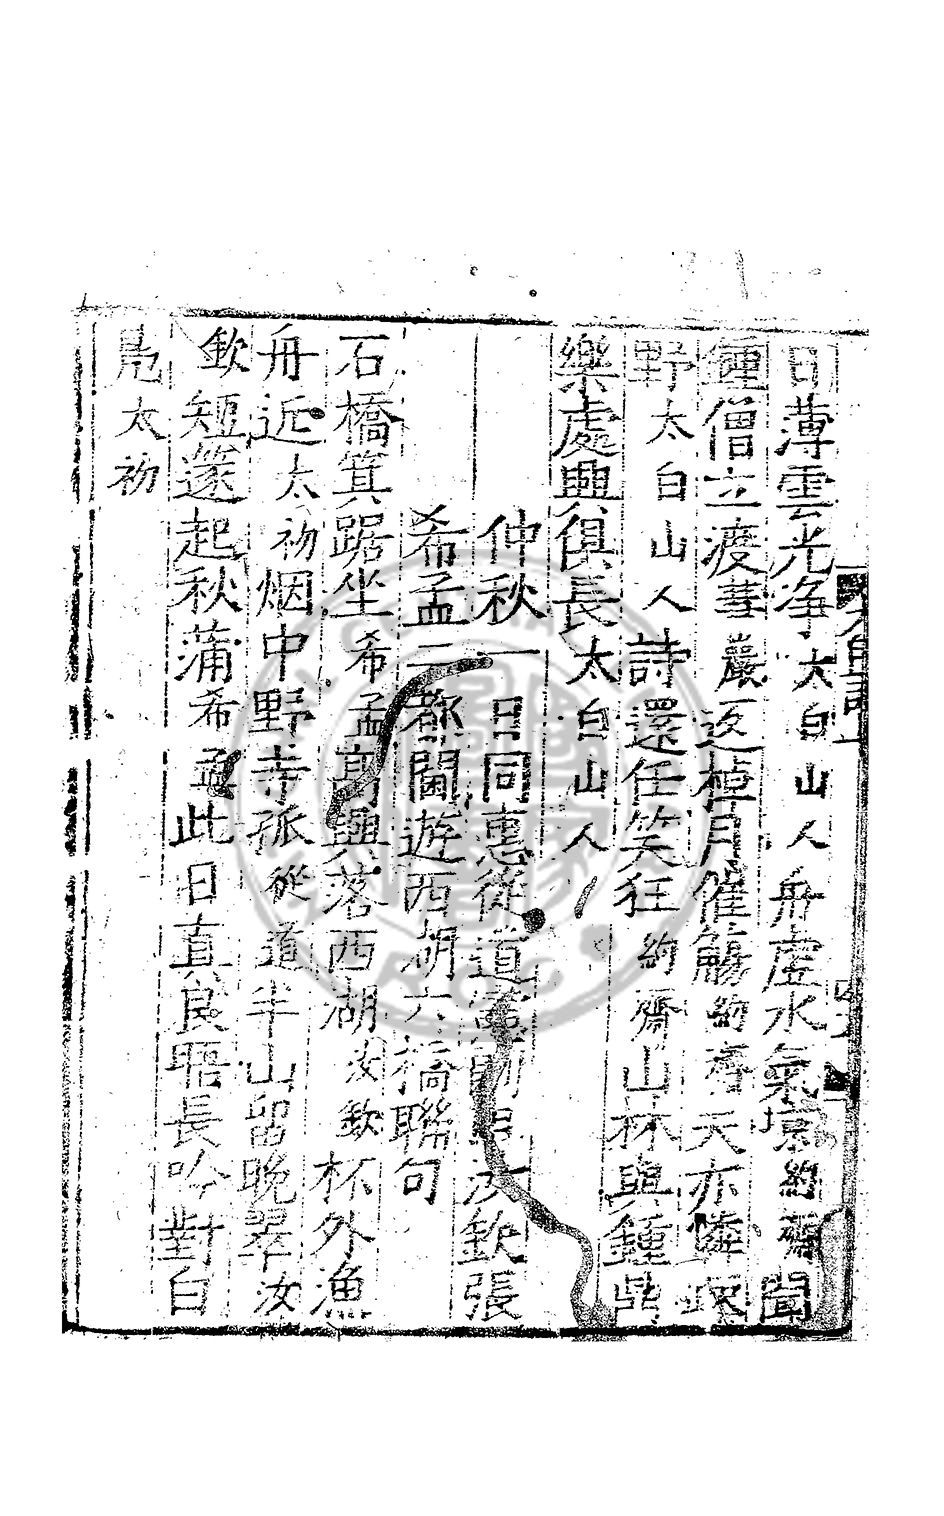 日薄雲光淨太白山人舟虛水氣凉約齋聞
鐘僧立渡彗巖返棹月催觴約齋天亦憐
野太白山人詩還任笑狂約齋山林與鐘鼎
樂處興俱長太白山人
仲秋一日同惠從道汝欽張
希孟二都閫遊西湖六橋聯句
石橋箕踞坐希孟高興落西湖汝欽杯外漁
舟近太初烟中野寺孤從道半山留晚翠汝
欽短篴起秋蒲希孟此日真良晤長吟對白
鳧太初